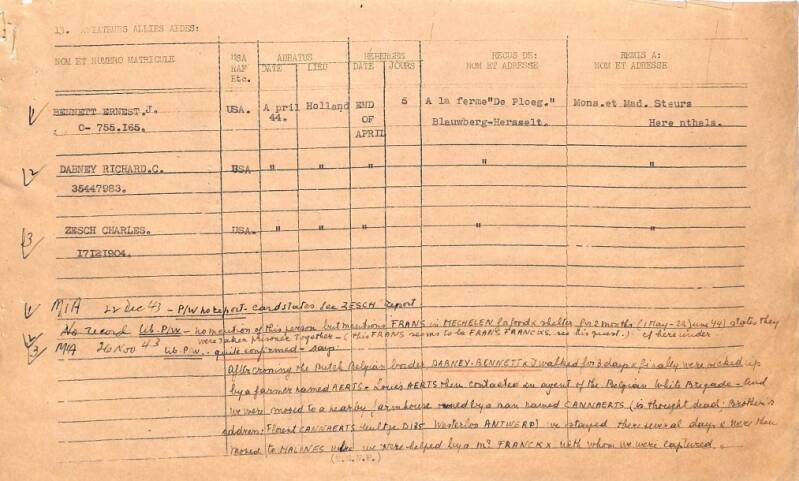 13. AVIATEURS ALLIES AIDES:
NOM ET NUMERO MATRICULE USA RAF Etc. ABBATUS DATE LIEU HEBERGES DATE JOURS RECUS DE: NOM ET ADRESSE REMIS A: NOM ET ADRESSE
1 BENNETT ERNEST.J. USA. April Holland END 5 A la ferme"De Ploeg." Mons.et Mad. Steurs
O- 755.165. 44. OF Blauwberg-Herselt. Herenthals.
APRIL
2 DABNEY RICHARD.C. USA " " " " "
35447983.
3 ZESCH CHARLES. USA. " " " " "
17121904.
1 MIA 22 Dec 43 - P/W no report. Card states see ZESCH report.
2 No record lib. P/W - no mention of this person but mentions FRANS in MECHELEN for food & shelter for 2 months (1 May - 28 June 44) states they
were taken prisoner together - (this FRANS seems to be FRANS FRANCKX. see his quest.) if here under
3 MIA 26 Nov 43 lib P/W. - quite confirmed - says:
After crossing the Dutch Belgian border DABNEY - BENNETT & I walked for 3 days & finally were picked up
by a farmer named AERTS. Louis AERTS then contacted an agent of the Belgian White Brigade - and
we were moved to a nearby farmhouse owned by a man named CANNAERTS (is thought dead. Brother's
address: Florent CANNAERTS D135 Westerloo ANTWERP) we stayed there several days & were then
moved to MALINES where we were helped by a Mr FRANCKX with whom we were captured.